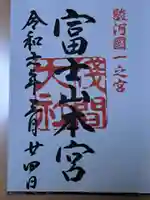 駿河國一之宮
富士山本宮
淺間
大社
令和 年 月廿四日